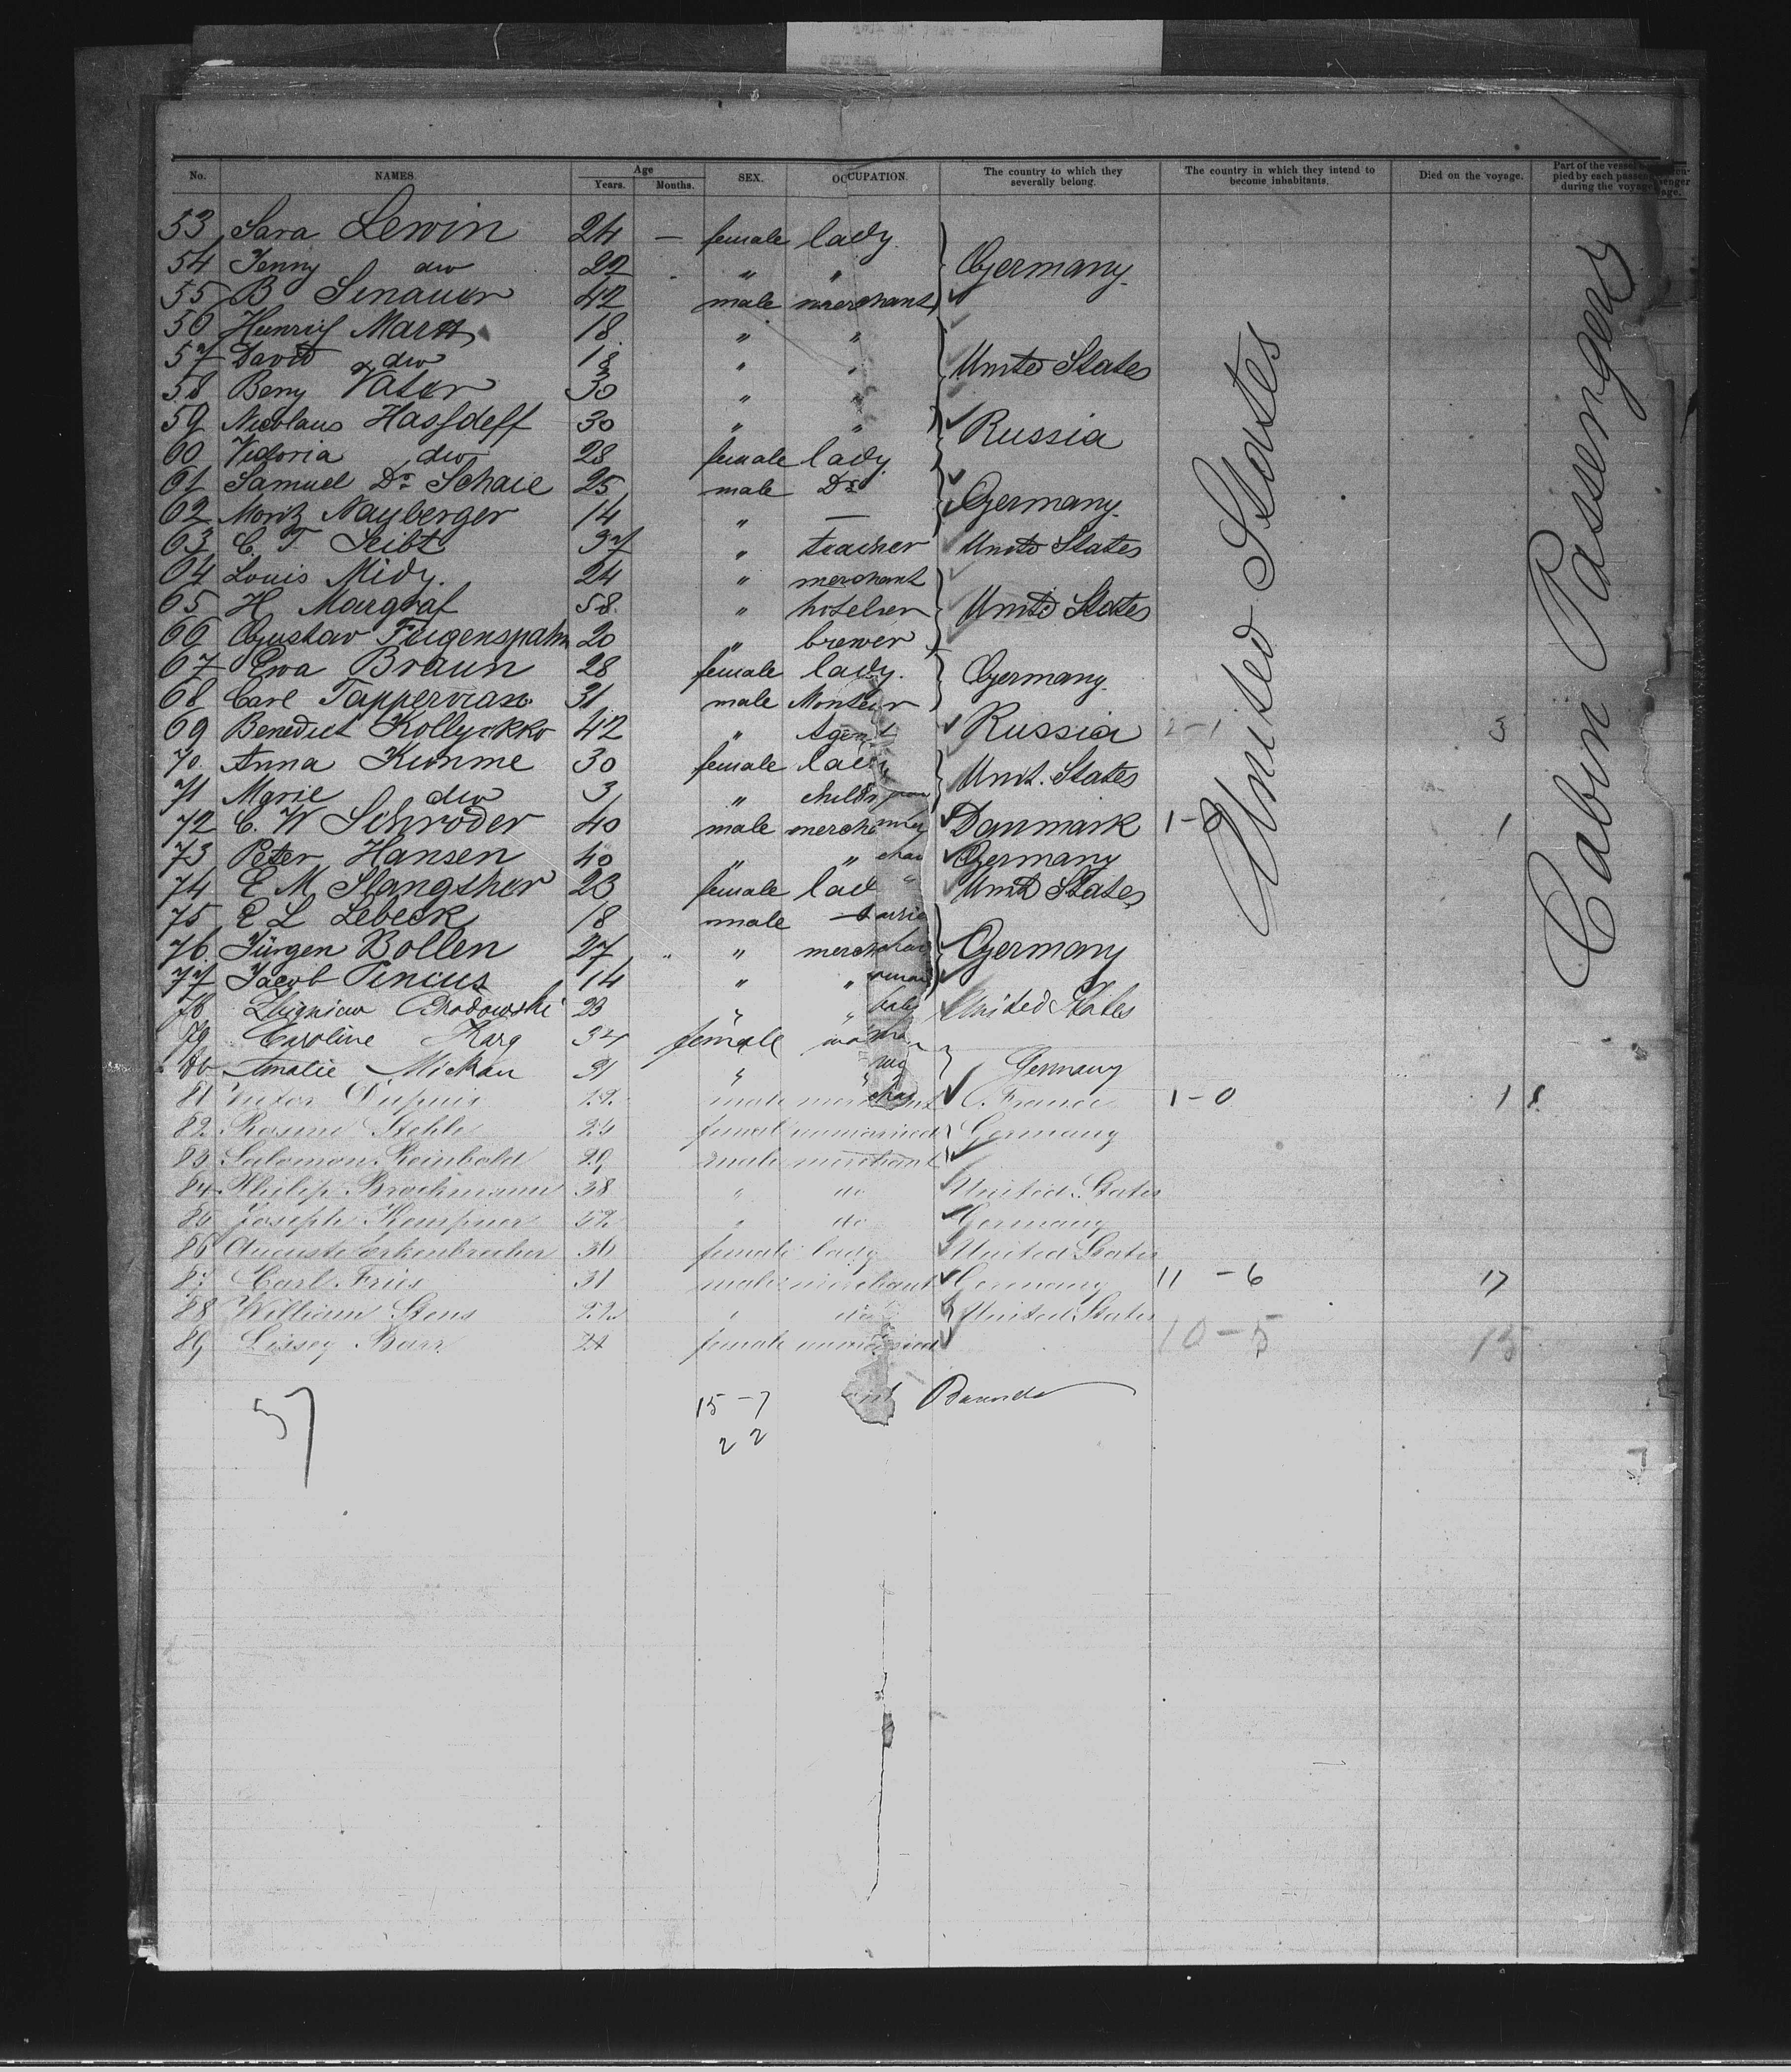 No. NAMES. Age Years. Months. SEX. OCCUPATION. The country to which they severally belong. The country in which they intend to become inhabitants. Died on the voyage. Part of the vessel during the voyage
53 Sara Lewin 24 — female lady
54 Jenny do 22 " " Germany.
55 B Sinauer 42 male merchant
56 18 " "
57 David do 18 " "
58 Beny Vater 30 " " United States
59 Nicolaus 30 " " Russia
60 Victoria do 28 female lady
61 Samuel Dr Schaie 25 male Dr
62 Moritz Nayberger 14 " — Germany.
63 C. T. Seibt 37 " teacher United States
64 Louis Midy. 24 " merchant
65 H Margraf 58. " United States
66 Gustav Feigenspahn 20 " brewer
67 Ewa Braun 28 female lady. Germany.
68 Carl 31 male Monteur
69 Benedict 42 " Agent Russia 2-1 3
70. Anna Kumme 30 female lady Unit. States
71 Marie do 3 " child
72 C. W Schröder 40 male Danmark 1-0 1
73 Peter Hansen 40 " " Germany
74 E M Slangsher 23 female United States
75 E L Lebeck 18 male —
76. Jürgen Bollen 27 " " Germany
77 Jacob Pincus 14 " "
78 23 " " United States
79 Caroline Karg 34 female
80 Amalie Mickau 31 " " Germany
81 Victor Dupuis male merchant France 1-0 1
82 Rosine Stehle 24 female unmarried Germany
83 Salomon Reinbold 29 male merchant
84 Philip Brockmann 38 " do United States
85 Joseph Kempner 52 " do Germany
86 Auguste Erkenbrecher 36 female lady United States
87 Carl Fries 31 male merchant Germany 11 - 6 17
88 William Stens 22 " do United States
89 21 female unmarried 10-5 15
United States
Cabin Passengers
57 15-7
22